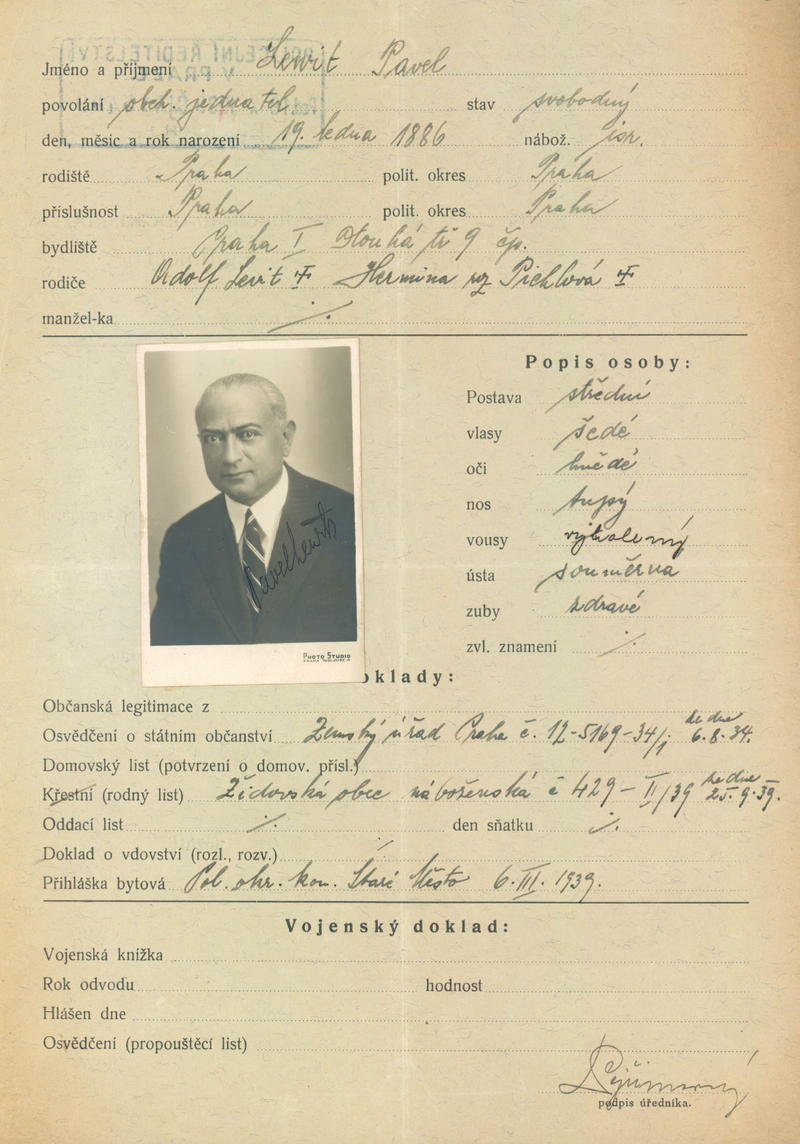 Jméno a příjmení Lewit Pavel
povolání obch. jednatel stav svobodný
den, měsíc a rok narození 19. ledna 1886 nábož. isr.
rodiště Praha polit. okres Praha
příslušnost Praha polit. okres Praha
bydliště Praha I Dlouhá tř 9 čp.
rodiče Adolf Levit † Hermina roz Pichlová †
manžel-ka ·/.
Popis osoby:
Postava střední
vlasy šedé
oči hnědé
nos tupý
vousy vyholený
ústa souměrna
zuby zdravé
zvl. znamení ·/.
Pavel Lewit
PHOTO STUDIO
oklady:
Občanská legitimace z
Osvědčení o státním občanství Zemský úřad Praha č. 12-5169-34/j ze dne 6.8.34.
Domovský list (potvrzení o domov. přísl.)
Křestní (rodný list) Židovská obec náboženská č 429-II/39 ze dne 25.9.39.
Oddací list ·/. den sňatku ·/.
Doklad o vdovství (rozl., rozv.) ·/.
Přihláška bytová Pol. okr. kom. Staré Město 6.III.1939.
Vojenský doklad:
Vojenská knížka
Rok odvodu hodnost
Hlášen dne
Osvědčení (propouštěcí list)
podpis úředníka.